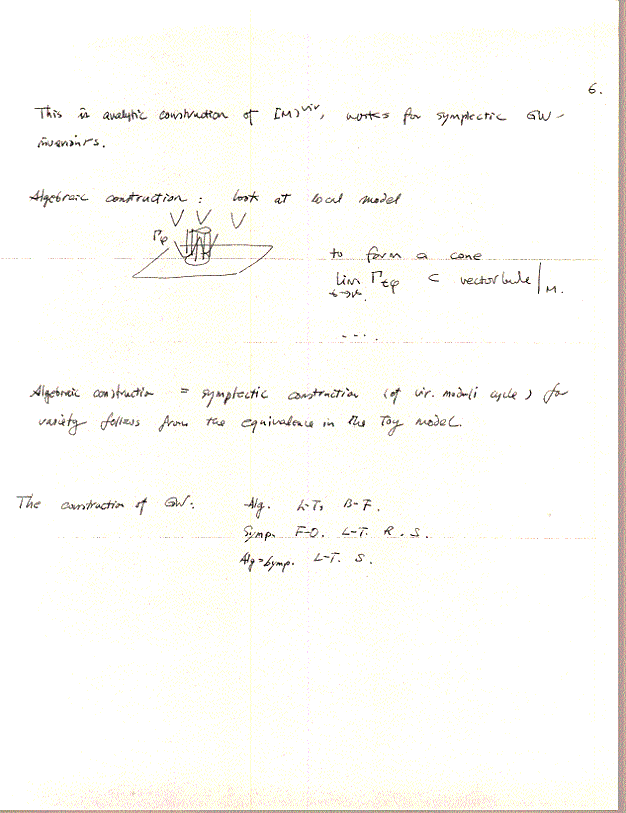 6.
This is analytic construction of [M]^vir, works for symplectic GW-
invariants.
Algebraic construction : look at local model
Γφ
to form a cone
lim Γtφ ⊂ vector bundle|M.
t→∞
....
Algebraic construction = symplectic construction (of vir. moduli cycle) for
variety follows from the equivalence in the Toy model.
The construction of GW: Alg. L-T, B-F.
Symp. F-O. L-T. R. S.
Alg=Symp. L-T. S.